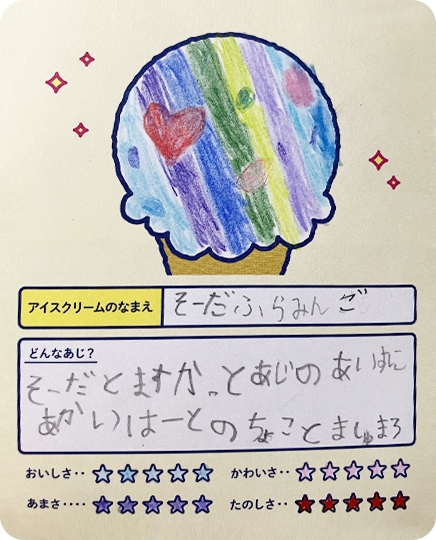 アイスクリームのなまえ
そーだふらみんご
どんなあじ？
そーだとますかっとあじのあいすに
あかいはーとのちょことましゅまろ
おいしさ‥ ☆☆☆☆☆ かわいさ‥ ☆☆☆☆☆
あまさ‥‥ ★★★★★ たのしさ‥ ★★★★★